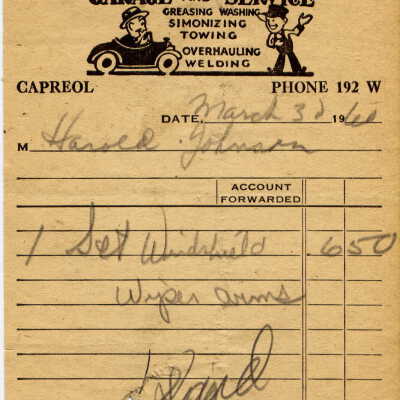 GARAGE AND SERVICE
GREASING WASHING
SIMONIZING
TOWING
OVERHAULING
WELDING
CAPREOL PHONE 192 W
DATE, March 3d 1960
M Harold Johnson
ACCOUNT
FORWARDED
1 Set Windshield 650
Wiper arms
Paid